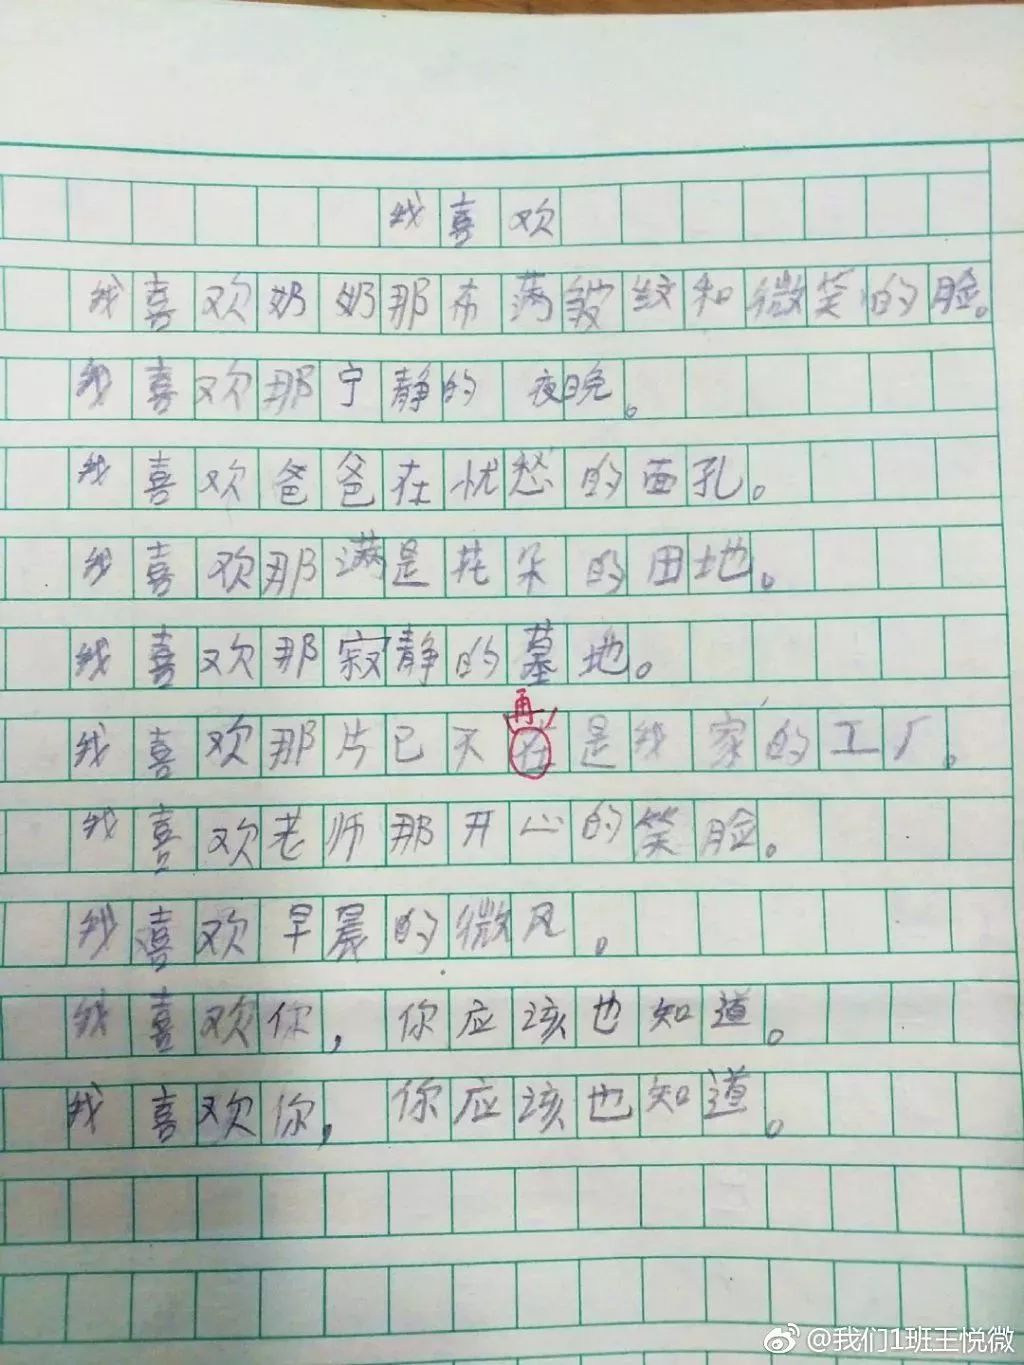 我喜欢
我喜欢奶奶那布满皱纹和微笑的脸。
我喜欢那宁静的 夜晚。
我喜欢爸爸在忧愁的面孔。
我喜欢那满是花朵的田地。
我喜欢那寂静的墓地。
再
我喜欢那片已不在是我家的工厂。
我喜欢老师那开心的笑脸。
我喜欢早晨的微风。
我喜欢你，你应该也知道。
我喜欢你，你应该也知道。
@我们1班王悦微